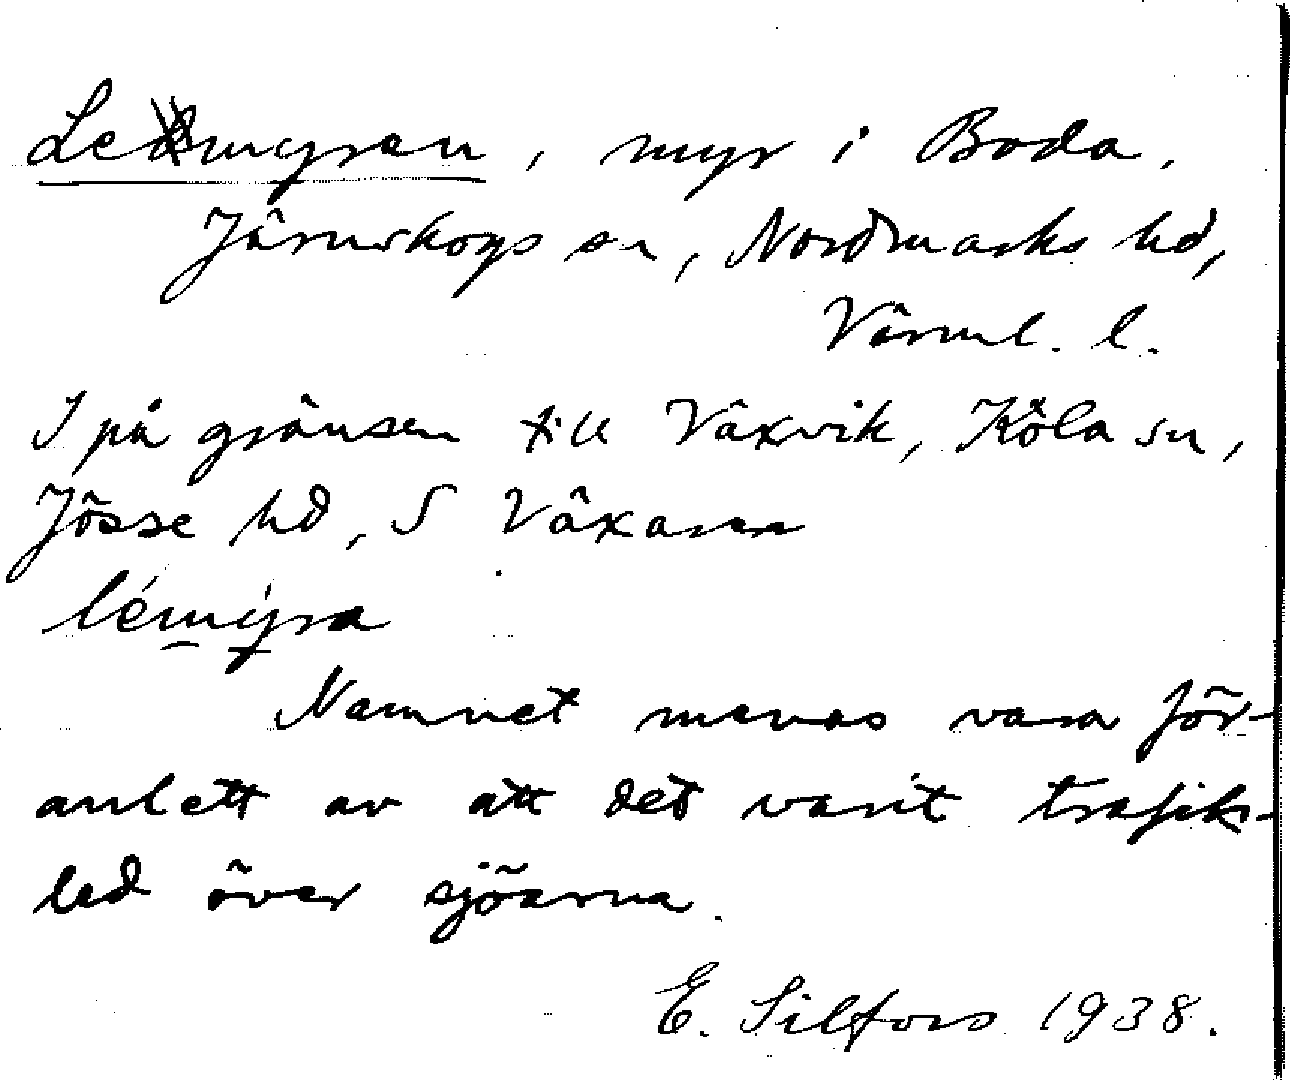 Lemmyran, myr i Boda,
Järnskogs sn, Nordmarks hd,
Värml. l.
I på gränsen till Växvik, Köla sn,
Jösse hd, S Växaren
lémýra
Namnet menas vara för-
anlett av att det varit trafik-
led över sjöarna.
E. Silfors 1938.